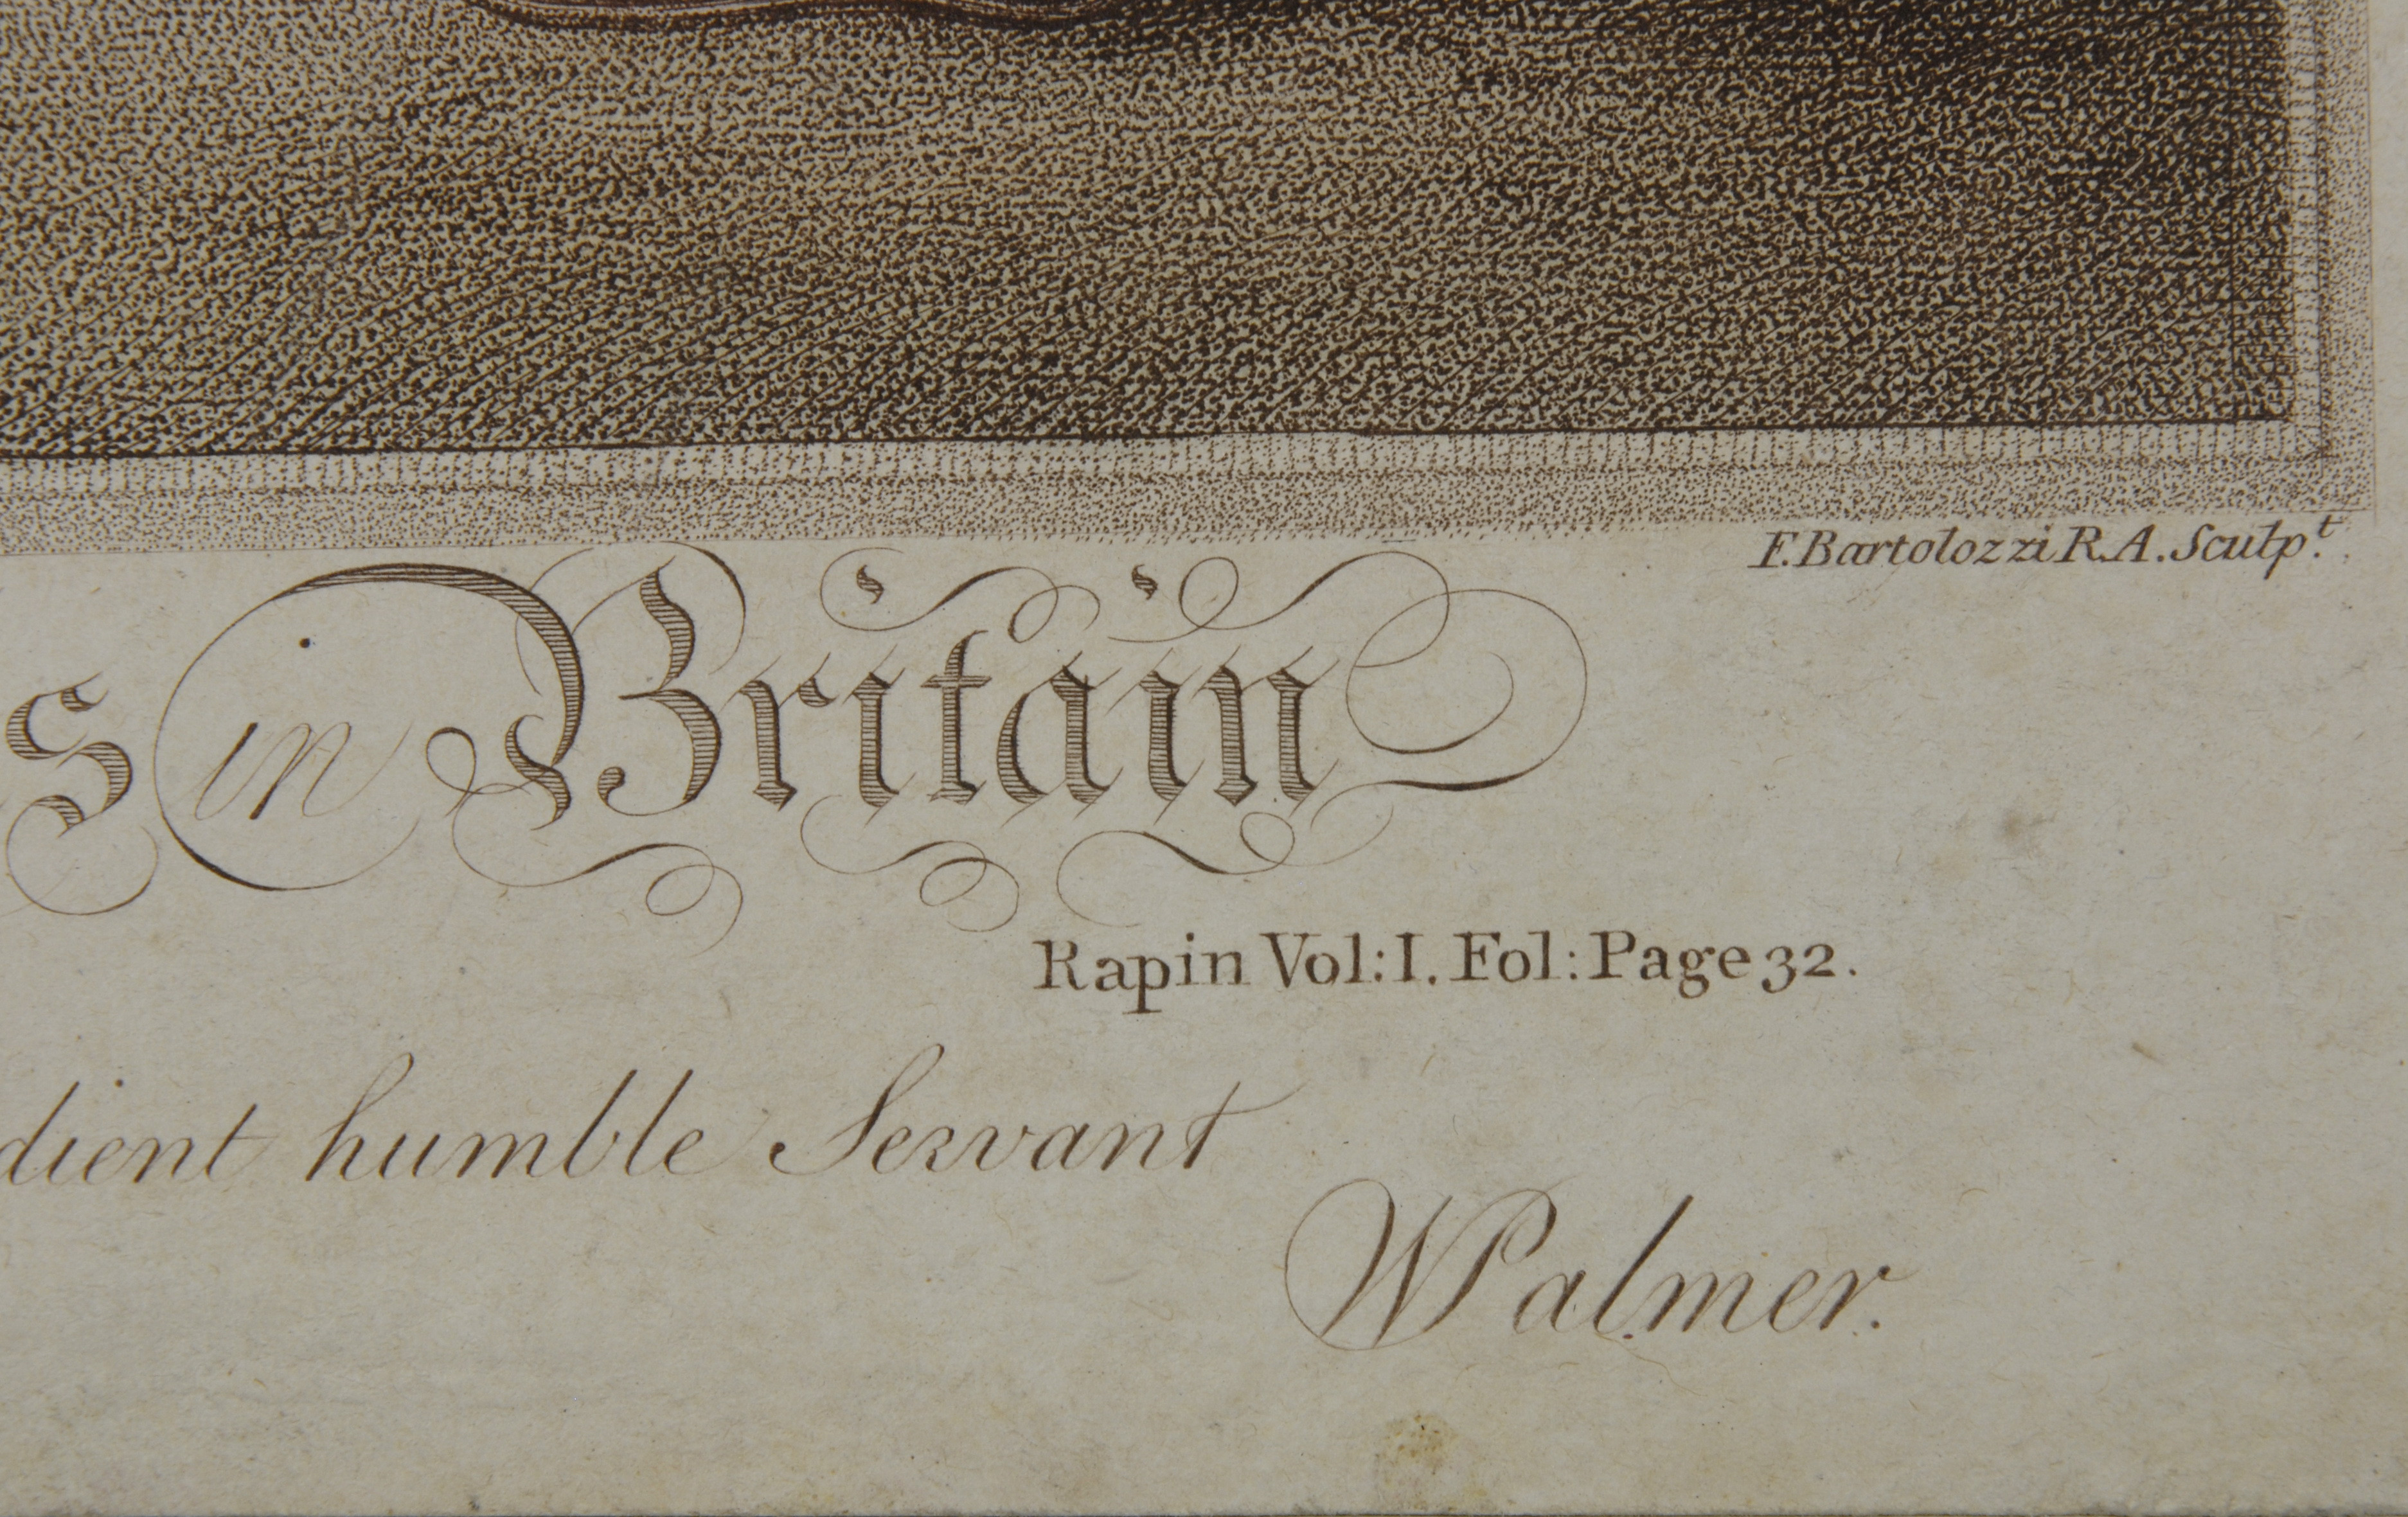 F. Bartolozzi R.A. Sculpt.
s in Britain
Rapin Vol: I. Fol: Page 32.
dient humble Servant
W Palmer.